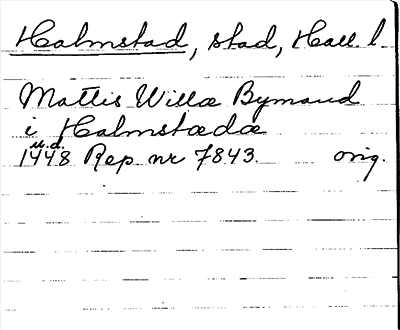 Halmstad, stad, Hall. l.
Mattis Willæ Bymand
i Halmstædæ
u.d.
1448 Rep nr 7843. orig.